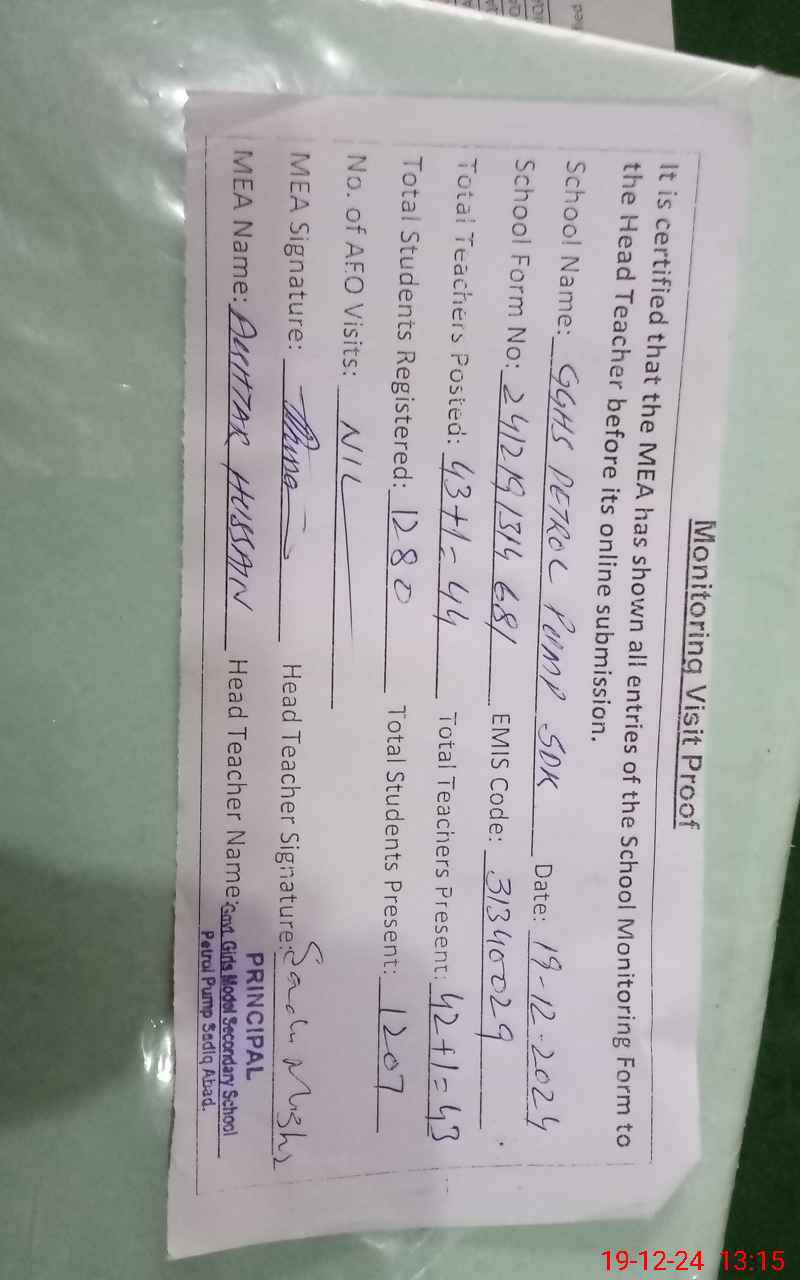 Monitoring Visit Proof
It is certified that the MEA has shown all entries of the School Monitoring Form to
the Head Teacher before its online submission.
School Name: GGHS PETROL PUMP SDK Date: 19-12-2024
School Form No: 2412191314 681 EMIS Code: 31340029
Total Teachers Posted: 43+1= 44 Total Teachers Present: 42+1=43
Total Students Registered: 1280 Total Students Present: 1207
No. of AEO Visits: NIL
MEA Signature: Head Teacher Signature:
MEA Name: AKHTAR HUSSAIN Head Teacher Name:
PRINCIPAL
Govt. Girls Model Secondary School
Petrol Pump Sadiq Abad.
19-12-24 13:15